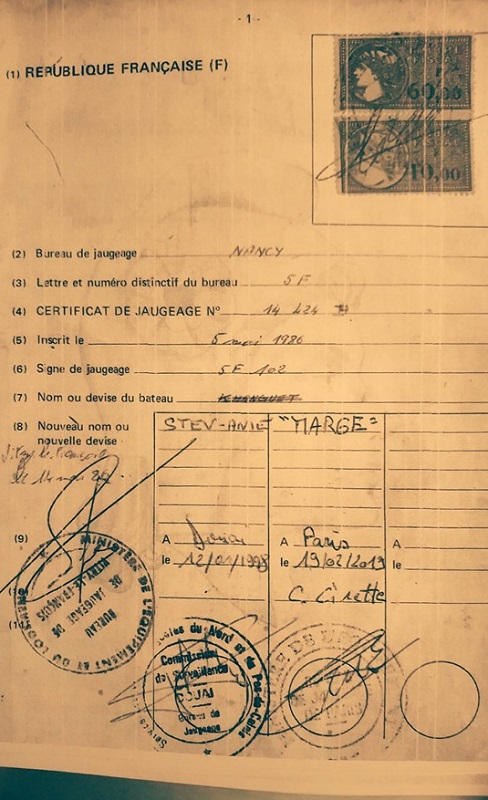 - 1 -
(1) REPUBLIQUE FRANÇAISE (F)
60,00
10,00
(2) Bureau de jaugeage NANCY
(3) Lettre et numéro distinctif du bureau 5F
(4) CERTIFICAT DE JAUGEAGE Nº 14 424
(5) Inscrit le 5 mai 1986
(6) Signe de jaugeage 5F 102
(7) Nom ou devise du bateau
(8) Nouveau nom ou nouvelle devise STEV-ANIE "MARGE"
(9) A Douai A Paris A
le 12/01/1998 le 19/02/2019 le
C. Cirette
MINISTERE DE L'EQUIPEMENT ET DU LOGEMENT
BUREAU
DE JAUGEAGE DE
VITRY-LE-FRANÇOIS
du Nord et du Pas-de-Calais
Commission
de Surveillance
DOUAI
Bureau de
Jaugeage